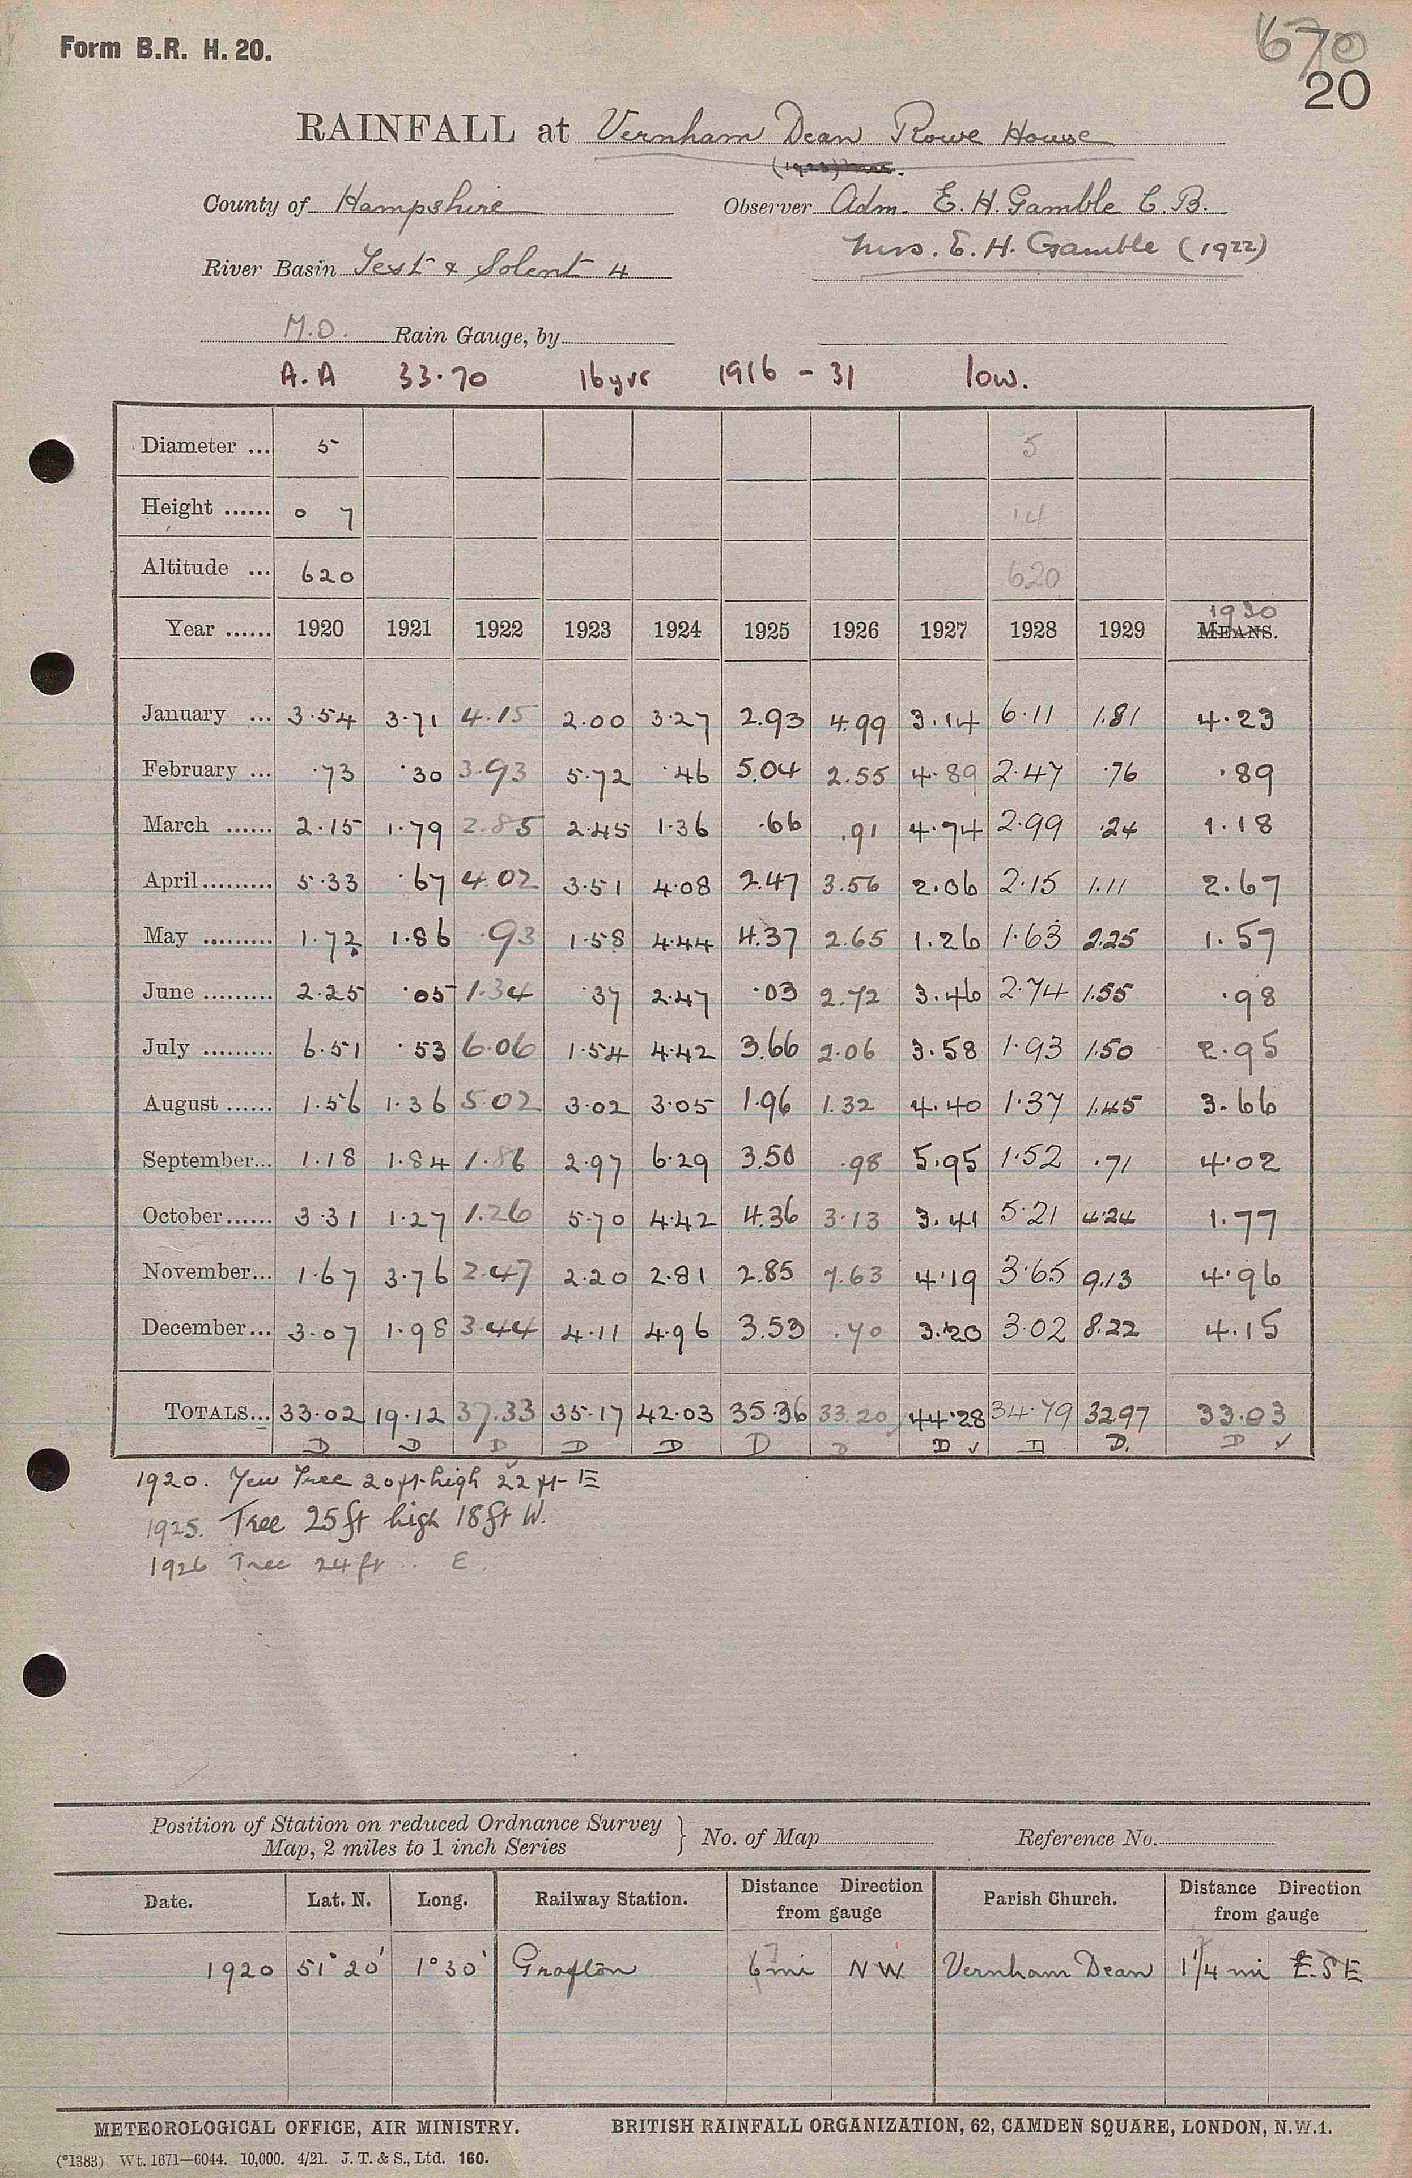 Form B.R. H. 20.
670
20
RAINFALL at Vernham Dean Rowe House
County of Hampshire Observer Adm. E. H. Gamble C. B.
Mrs. E. H. Gamble (1922)
River Basin Test & Solent 4
M.O. Rain Gauge, by
A.A 33.70 16 yrs 1916 - 31 low.
Diameter ... 5 5
Height ...... 0 7 14
Altitude ... 620 620
1930
Year ...... 1920 1921 1922 1923 1924 1925 1926 1927 1928 1929 MEANS.
January ... 3.54 3.71 4.15 2.00 3.27 2.93 4.99 3.14 6.11 1.81 4.23
February ... .73 .30 3.93 5.72 .46 5.04 2.55 4.89 2.47 .76 .89
March ...... 2.15 1.79 2.85 2.45 1.36 .66 .91 4.74 2.99 .24 1.18
April ......... 5.33 .67 4.02 3.51 4.08 2.47 3.56 2.06 2.15 1.11 2.67
May ......... 1.72 1.86 .93 1.58 4.44 4.37 2.65 1.26 1.63 2.25 1.57
June ......... 2.25 .05 1.34 .37 2.47 .03 2.72 3.46 2.74 1.55 .98
July ......... 6.51 .53 6.06 1.54 4.42 3.66 2.06 3.58 1.93 1.50 2.95
August ...... 1.56 1.36 5.02 3.02 3.05 1.96 1.32 4.40 1.37 1.45 3.66
September... 1.18 1.84 1.86 2.97 6.29 3.50 .98 5.95 1.52 .71 4.02
October...... 3.31 1.27 1.26 5.70 4.42 4.36 3.13 3.41 5.21 4.24 1.77
November... 1.67 3.76 2.47 2.20 2.81 2.85 7.63 4.19 3.65 9.13 4.96
December... 3.07 1.98 3.44 4.11 4.96 3.53 .70 3.20 3.02 8.22 4.15
TOTALS... 33.02 19.12 37.33 35.17 42.03 35.36 33.20 44.28 34.79 32.97 33.03
D D D D D D D D ✓ D D. D ✓
1920. Yew Tree 20ft high 22 ft E
1925. Tree 25 ft high 18 ft W.
1926 Tree 24 ft .. E.
Position of Station on reduced Ordnance Survey
Map, 2 miles to 1 inch Series } No. of Map Reference No.
Date. Lat. N. Long. Railway Station. Distance Direction from gauge Parish Church. Distance Direction from gauge
1920 51° 20' 1° 30' Grafton 6 mi NW Vernham Dean 1 1/4 mi E.S E
METEOROLOGICAL OFFICE, AIR MINISTRY. BRITISH RAINFALL ORGANIZATION, 62, CAMDEN SQUARE, LONDON, N.W.1.
(*1383) Wt. 1671—6044. 10,000. 4/21. J. T. & S., Ltd. 160.